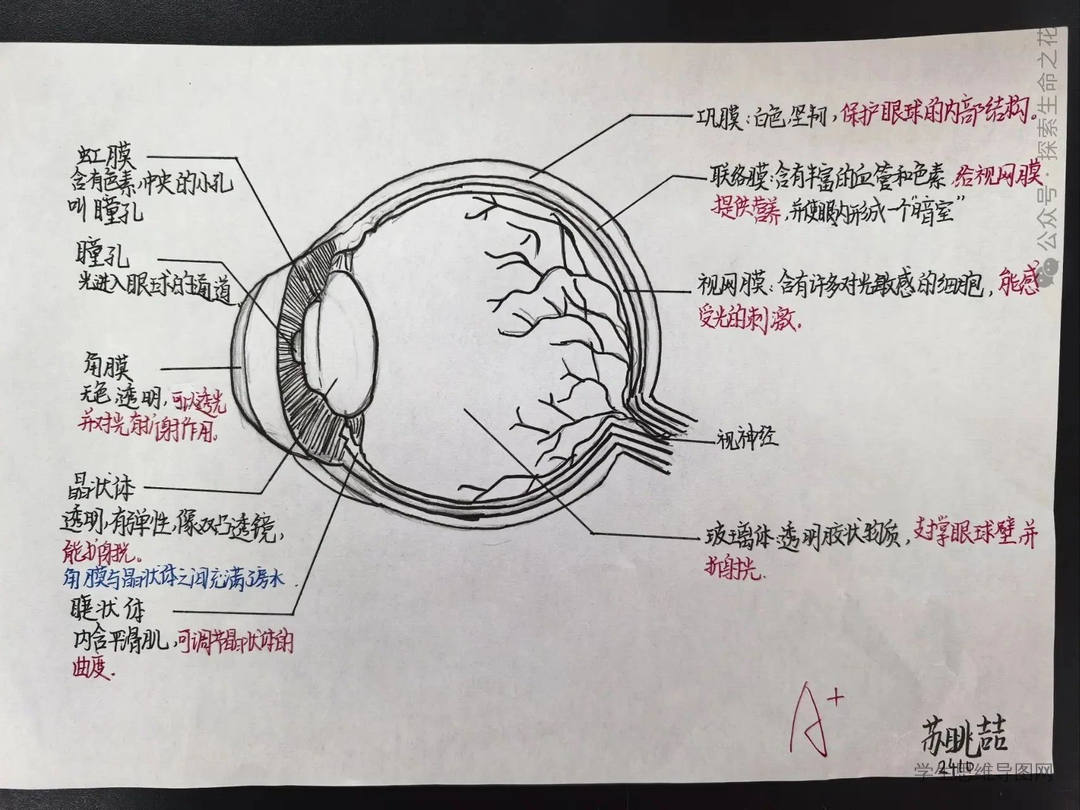 虹膜
含有色素,中央的小孔
叫瞳孔
瞳孔
光进入眼球的通道
角膜
无色透明,可以透光
并对光有折射作用。
晶状体
透明,有弹性,像双凸透镜,
能折射光。
角膜与晶状体之间充满了房水.
睫状体
内含平滑肌,可调节晶状体的
曲度.
巩膜:白色坚韧,保护眼球的内部结构。
联络膜:含有丰富的血管和色素,给视网膜
提供营养,并使眼内形成一个"暗室"
视网膜:含有许多对光敏感的细胞,能感
受光的刺激.
视神经
玻璃体:透明胶状物质,支撑眼球壁,并
折射光.
A+
苏眺喆
2410
公众号·探索生命之花
思维导图网